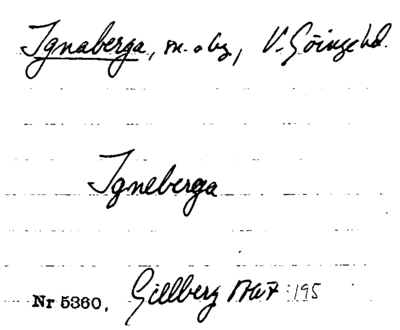 Ignaberga, sn. o by, V. Göinge hd.
Igneberga
Nr 5360. Gillberg 195